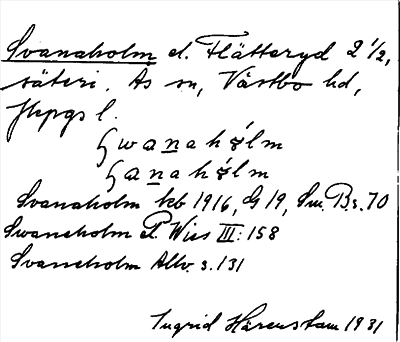 Svanaholm el. Flätteryd 2 1/2,
säteri. Ås sn, Västbo hd,
Jkpgs l.
Swanahólm
Sanahólm
Svanaholm kb 1916, G 19, Sm. Bs. 70
Swaneholm P. Wies III: 158
Svaneholm Allv. s. 131
Ingrid Härenstam 1931